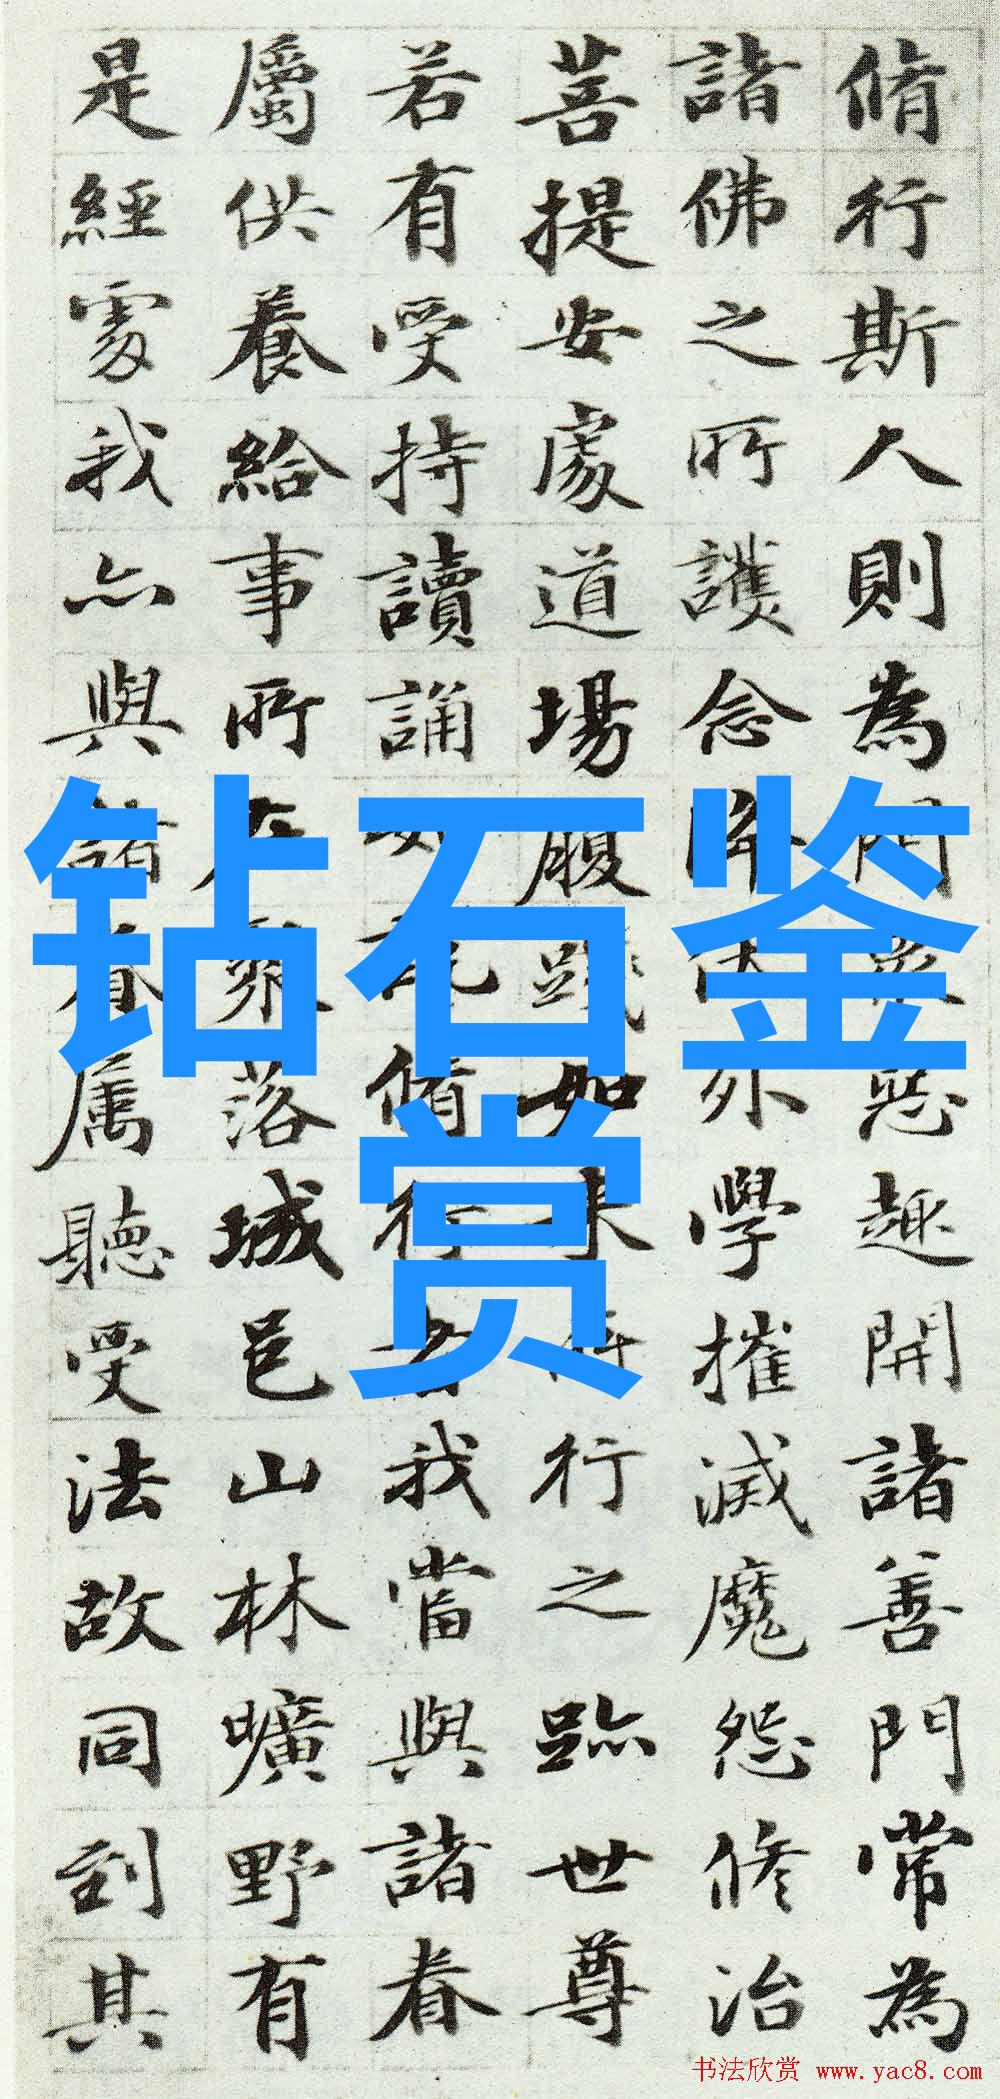 脩行斯人則為閉眾惡趣開諸善門常為
諸佛之所護念降伏外學摧滅魔怨修治
菩提安處道場履踐如來所行之跡世尊
若有受持讀誦如說脩行者我當與諸眷
屬供養給事所在聚落城邑山林曠野有
是經處我亦與諸眷屬聽受法故同到其
钻石鉴
赏
书法欣赏 www.yac8.com